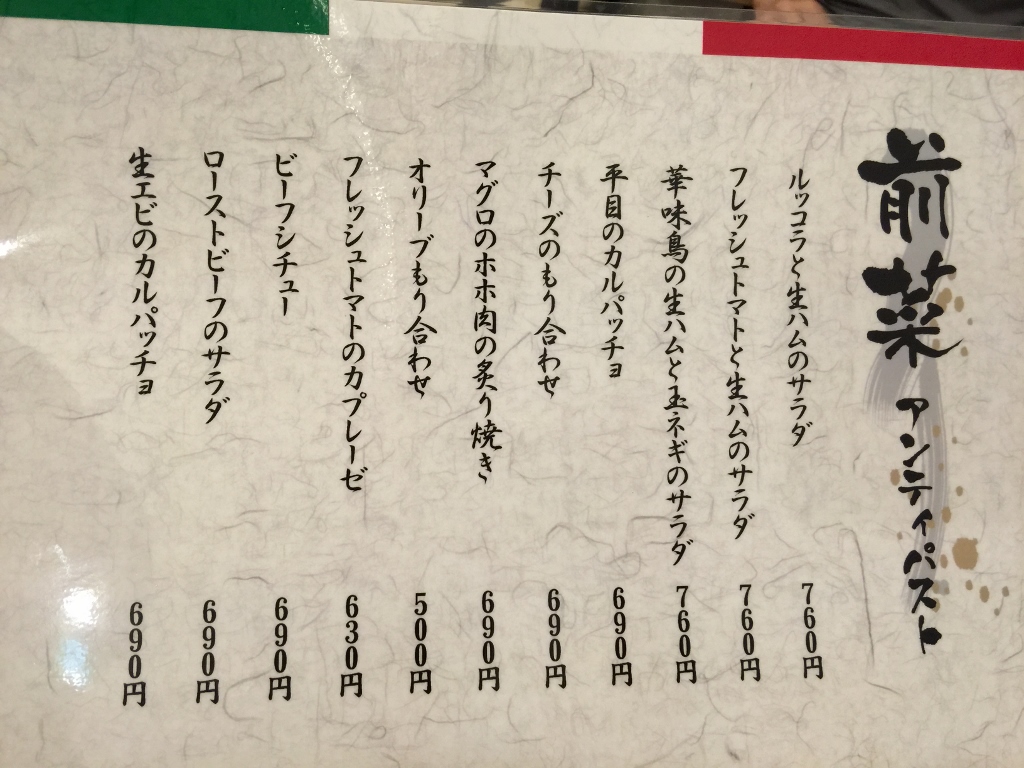 前菜 アンティパスト
ルッコラと生ハムのサラダ 760円
フレッシュトマトと生ハムのサラダ 760円
華味鳥の生ハムと玉ネギのサラダ 760円
平目のカルパッチョ 690円
チーズのもり合わせ 690円
マグロのホホ肉の炙り焼き 690円
オリーブもり合わせ 500円
フレッシュトマトのカプレーゼ 630円
ビーフシチュー 690円
ローストビーフのサラダ 690円
生エビのカルパッチョ 690円